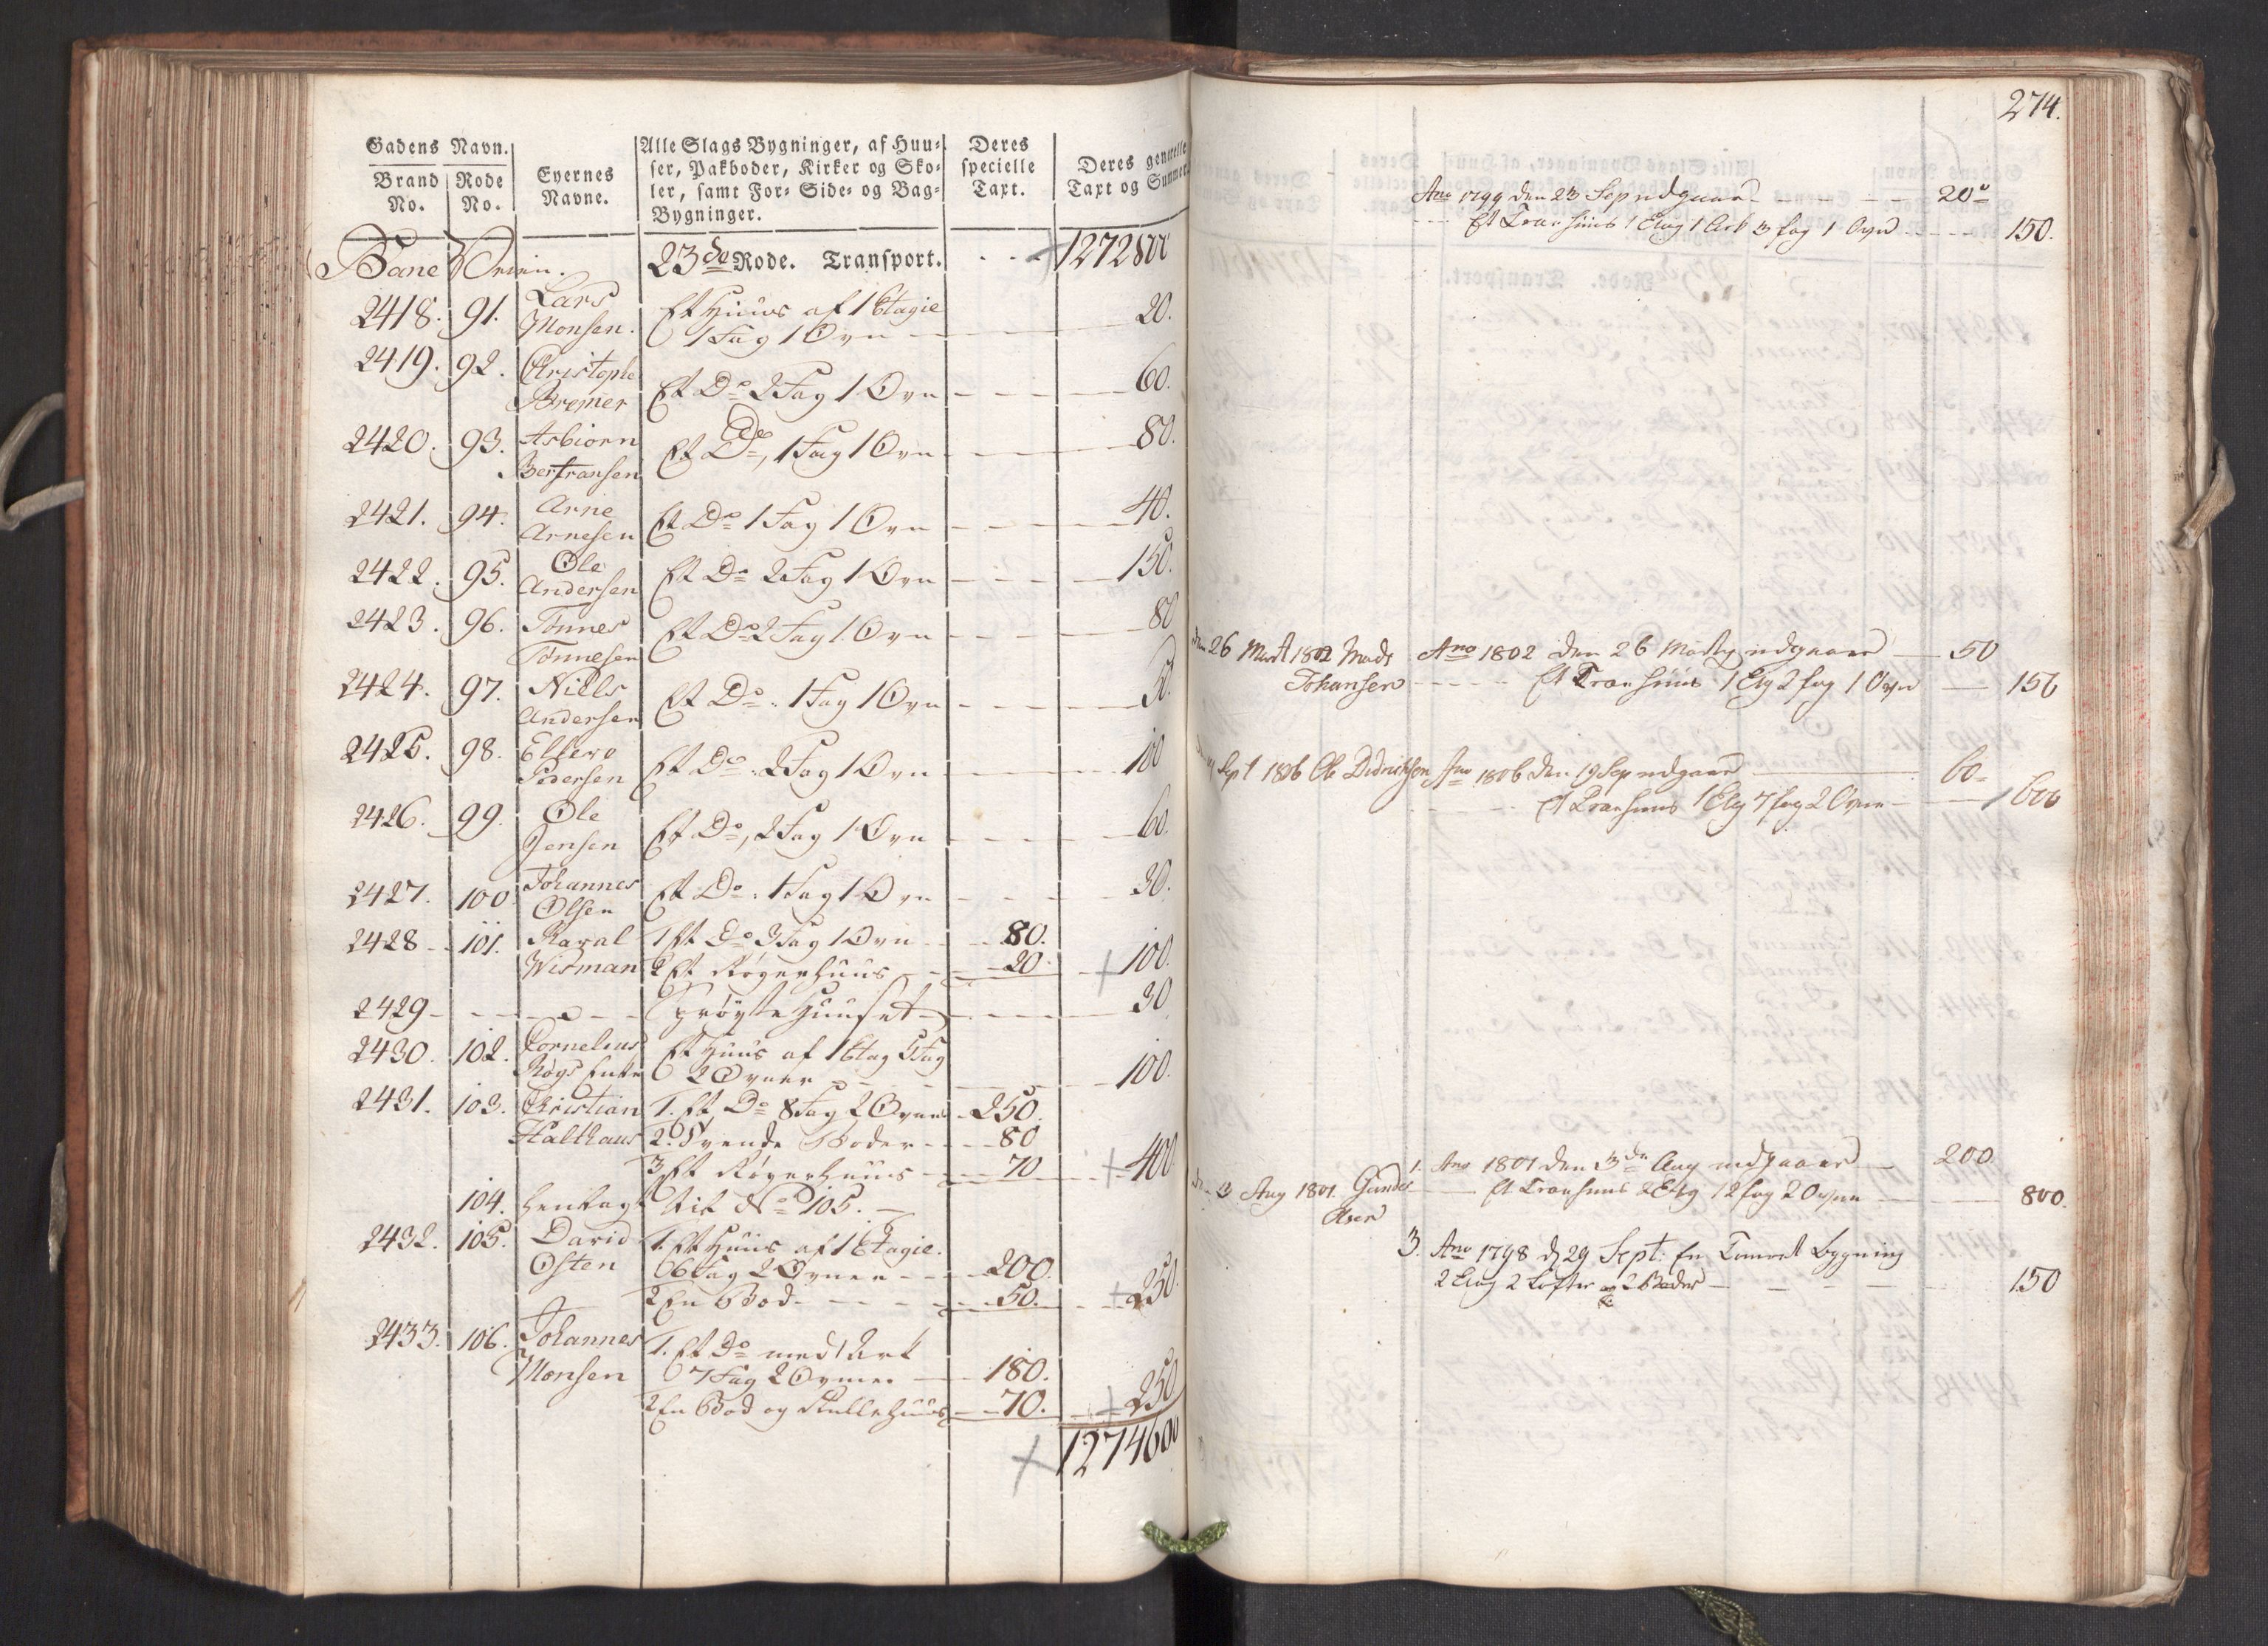 Gadens Navn.
Brand No.
Rode No.
Eyernes Navne.
Alle Slags Bygninger, af Huu-
ser, Pakboder, Kirker og Sko-
ler, samt For- Side- og Bag-
Bygninger.
Deres specielle Taxt.
Deres generelle Taxt og Summer.
Bane Veien. 23de Rode. Transport. 1272800
2418. 91. Lars Et Huus af 1 Etagie
Monsen. 1 Fag 1 Ovn 20.
2419. 92. Christople
Bremer Et Do 2 Fag 1 Ovn 60.
2420. 93. Asbiorn Et Do, 1 Fag 1 Ovn 80.
Bertransen
2421. 94. Arne
Arnesen Et Do 1 Fag 1 Ovn 40.
2422. 95. Ole
Andersen Et Do 2 Fag 1 Ovn 150.
2423. 96. Tönnes Et Do 2 Fag 1 Ovn 80
Tönnesen
2424. 97. Niels Et Do. 1 Fag 1 Ovn 50.
Andersen
2425. 98. Ellero
Pedersen Et Do. 2 Fag 1 Ovn 100
2426. 99. Ole
Jensen Et Do, 2 Fag 1 Ovn 60.
2427. 100 Johannes
Olsen Et Do. 1 Fag 1 Ovn 30.
2428 101. Raval 1 Et Do 3 Fag 1 Ovn 80.
Wisman 2 Et Røgerhuus 20 100.
2429 Sprøyte Huuset 30
2430. 102. Cornelius Et Huus af 1 Etag 5 Fag
Røgs Enke 2 Ovner 100.
2431. 103. Christian 1. Et Do 8 Fag 2 Ovner 250.
Halthaus 2. Tvende Boder 80
3 Et Røgerhuus 70 400
104. henlagt til No 105.
2432. 105. David 1. Et Huus af 1 Etagie.
Osten 6 Fag 2 Ovner 200.
2 En Bod 50. 250.
2433. 106. Johannes 1. Et Do med 1 Ark
Monsen 7 Fag 2 Ovner 180.
2 En Bod og Rullehuus 70. 250
1274600
274.
Ano 1799 den 23 Sep udgaaer 20
Et Træe huus 1 Etag 1 Ark 3 fag 1 Ovn 150.
den 26 Mart 1802 Mads Ano 1802 den 26 Marty udgaaer 50
Johansen Et Træe huus 1 Etg 2 fag 1 Ovn 150
Sept 1806 Ole Didrichsen Ano 1806 den 19 Sep udgaaer 60
Et Træehuus 1 Etg 7 fag 2 Ovne 600
1. Ano 1801 den 3de Aug udgaaer 200.
den 3 Aug 1801 Gunder Et Træehuus 2 Etg 12 fag 2 Ovne 800.
Olsen
3. Ano 1798 d 29 Sept: En Tømret bygning
2 Etag 2 Lofter og 2 Boder 150